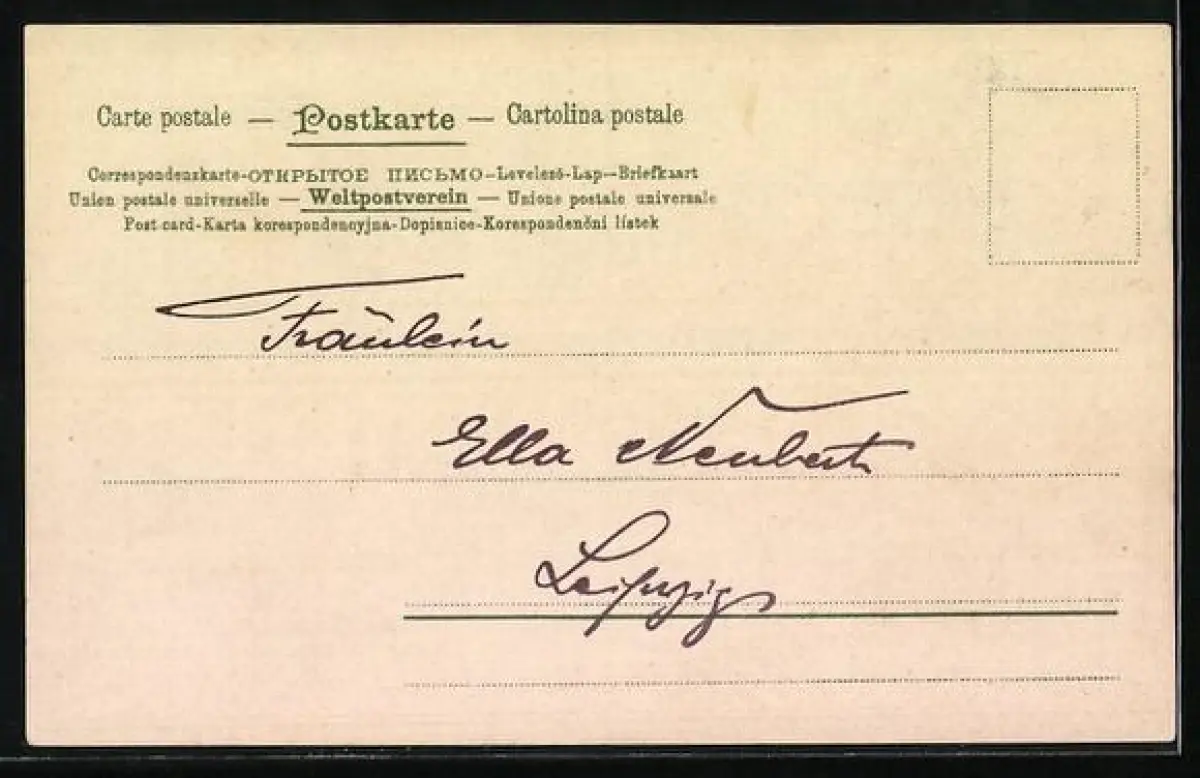 Carte postale — Postkarte — Cartolina postale
Correspondenzkarte-ОТКРЫТОЕ ПИСЬМО-Levelező-Lap-Briefkaart
Union postale universelle — Weltpostverein — Unione postale universale
Post card-Karta korespondencyjna-Dopisnice-Korespondenční lístek
Fräulein
Ella Neubert
Leipzig